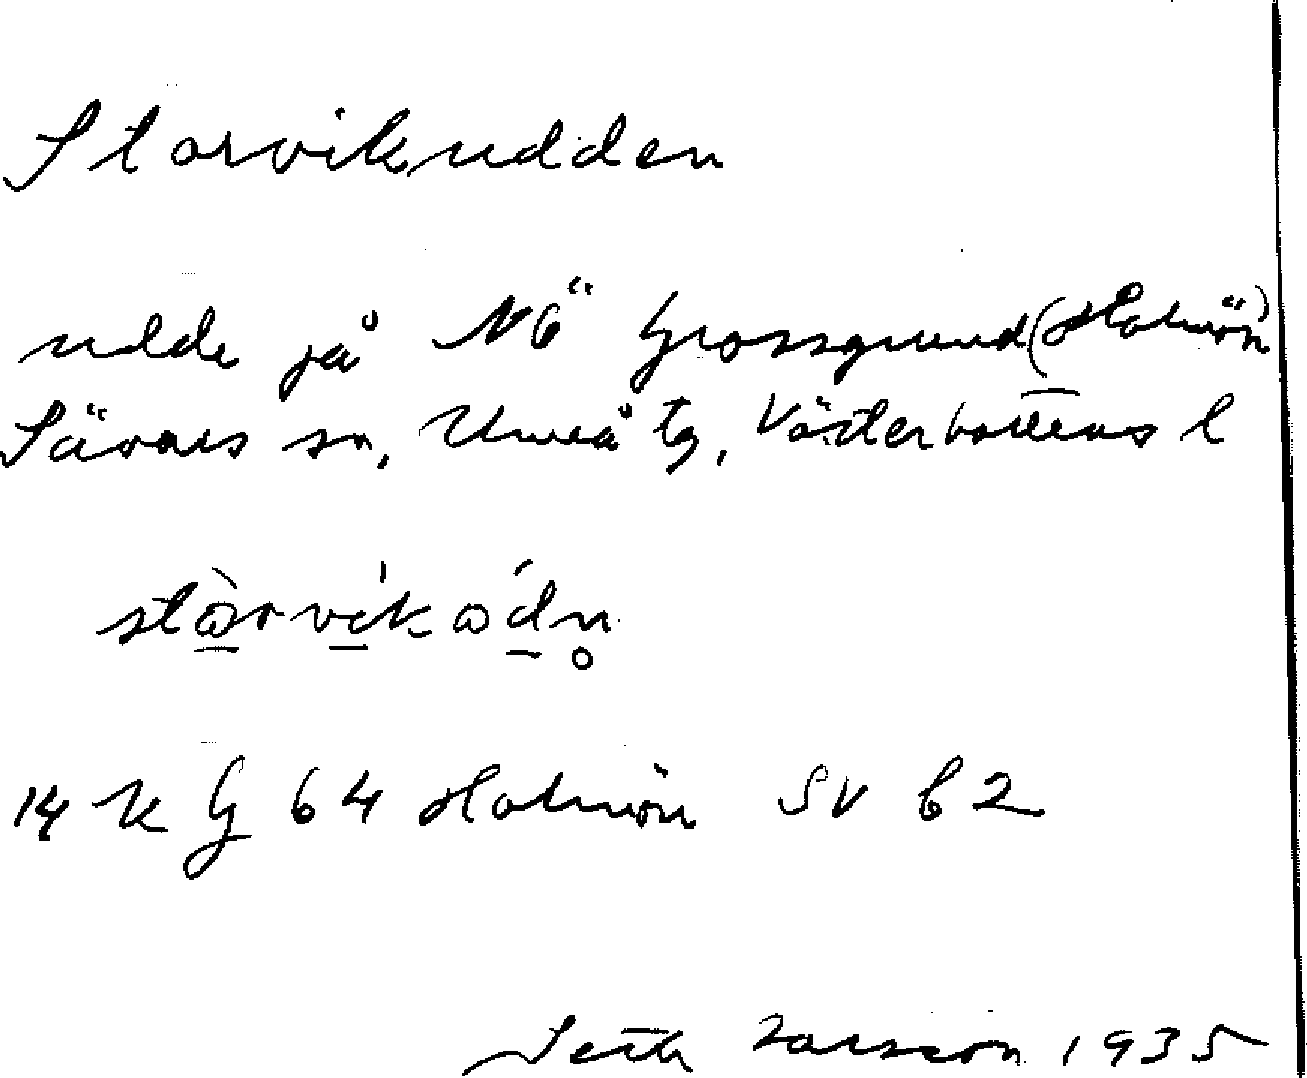 Storvikudden
udde på NÖ Grossgrund (Holmön)
Sävars sn, Umeå tg, Västerbottens l
14 K G 64 Holmön SV b 2
Seth Larsson 1935